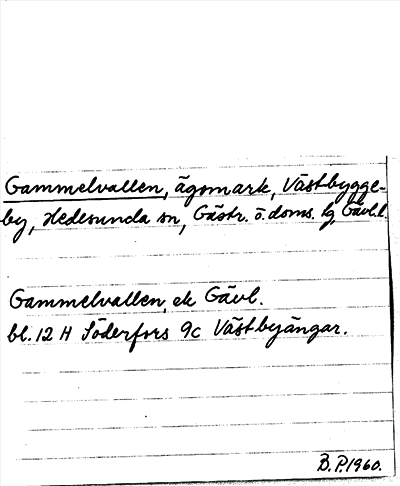 Gammelvallen, ägomark, Västbygge-
by, Hedesunda sn, Gästr. ö. doms. lg, Gävl.l.
Gammelvallen, ek Gävl.
bl. 12 H Söderfors 9c Västbyängar.
B.P. 1960.